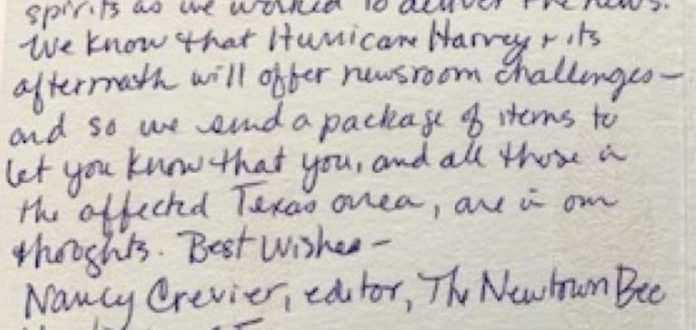 spirits as we worked to deliver the news.
We know that Hurricane Harvey + its
aftermath will offer newsroom challenges —
and so we send a package of items to
let you know that you, and all those in
the affected Texas area, are in our
thoughts. Best Wishes —
Nancy Crevier, editor, The Newtown Bee